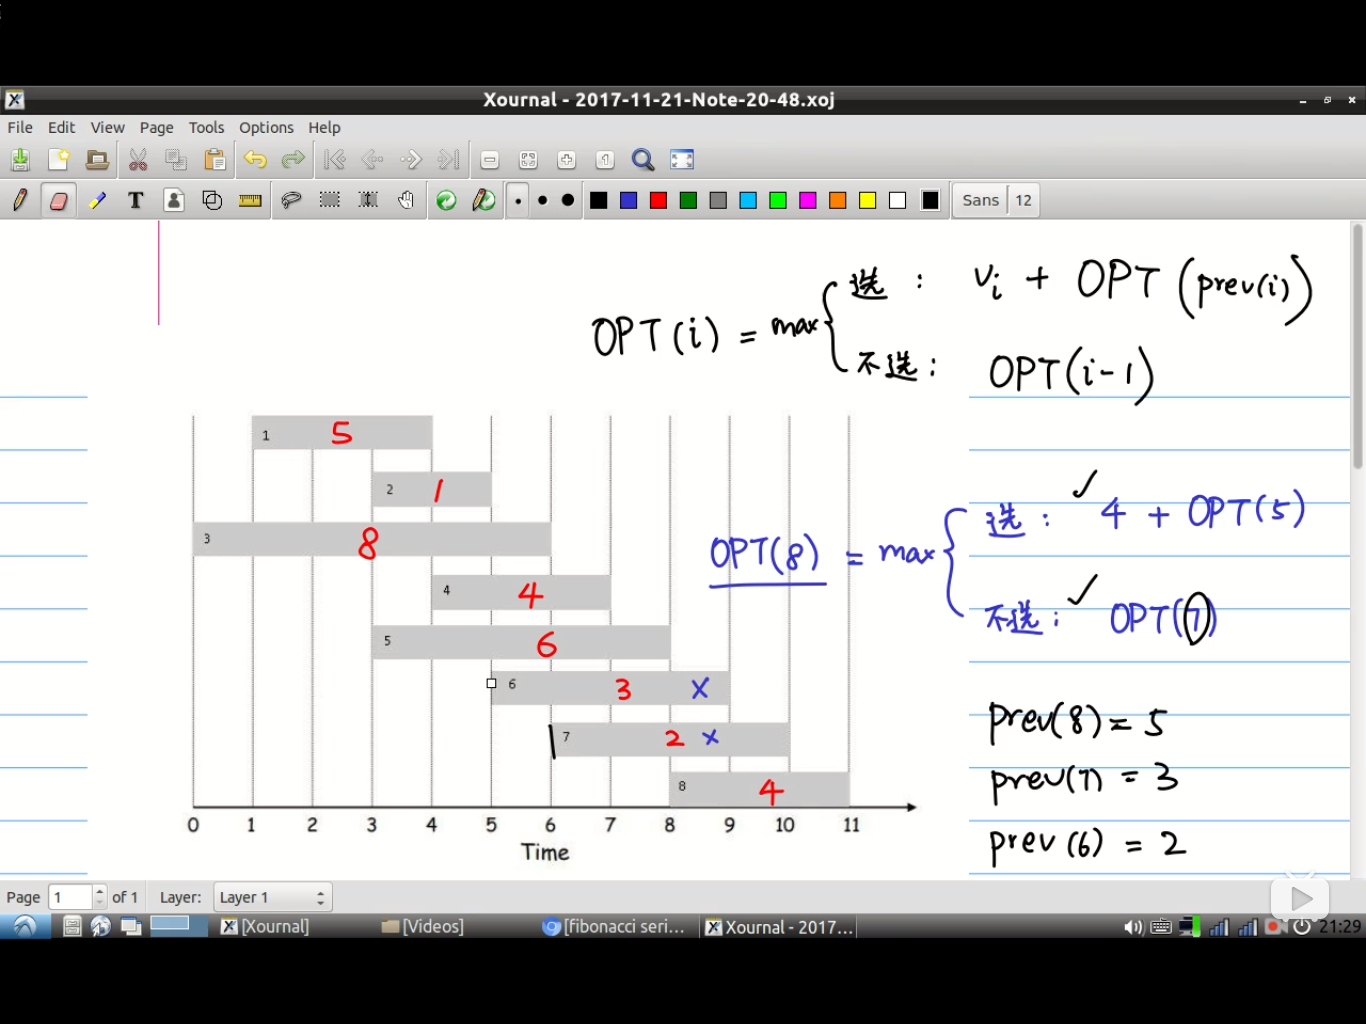 Xournal - 2017-11-21-Note-20-48.xoj
File Edit View Page Tools Options Help
Sans 12
选 : vi + OPT (prev(i))
OPT(i) = max
不选 : OPT(i-1)
1 5
2 1
3 8
4 4
5 6
6 3 x
7 2 x
8 4
0 1 2 3 4 5 6 7 8 9 10 11
Time
✓
选 : 4 + OPT(5)
OPT(8) = max
✓
不选 : OPT(7)
prev(8) = 5
prev(7) = 3
prev(6) = 2
Page 1 of 1 Layer: Layer 1
[Xournal] [Videos] [fibonacci seri... Xournal - 2017... 21:29